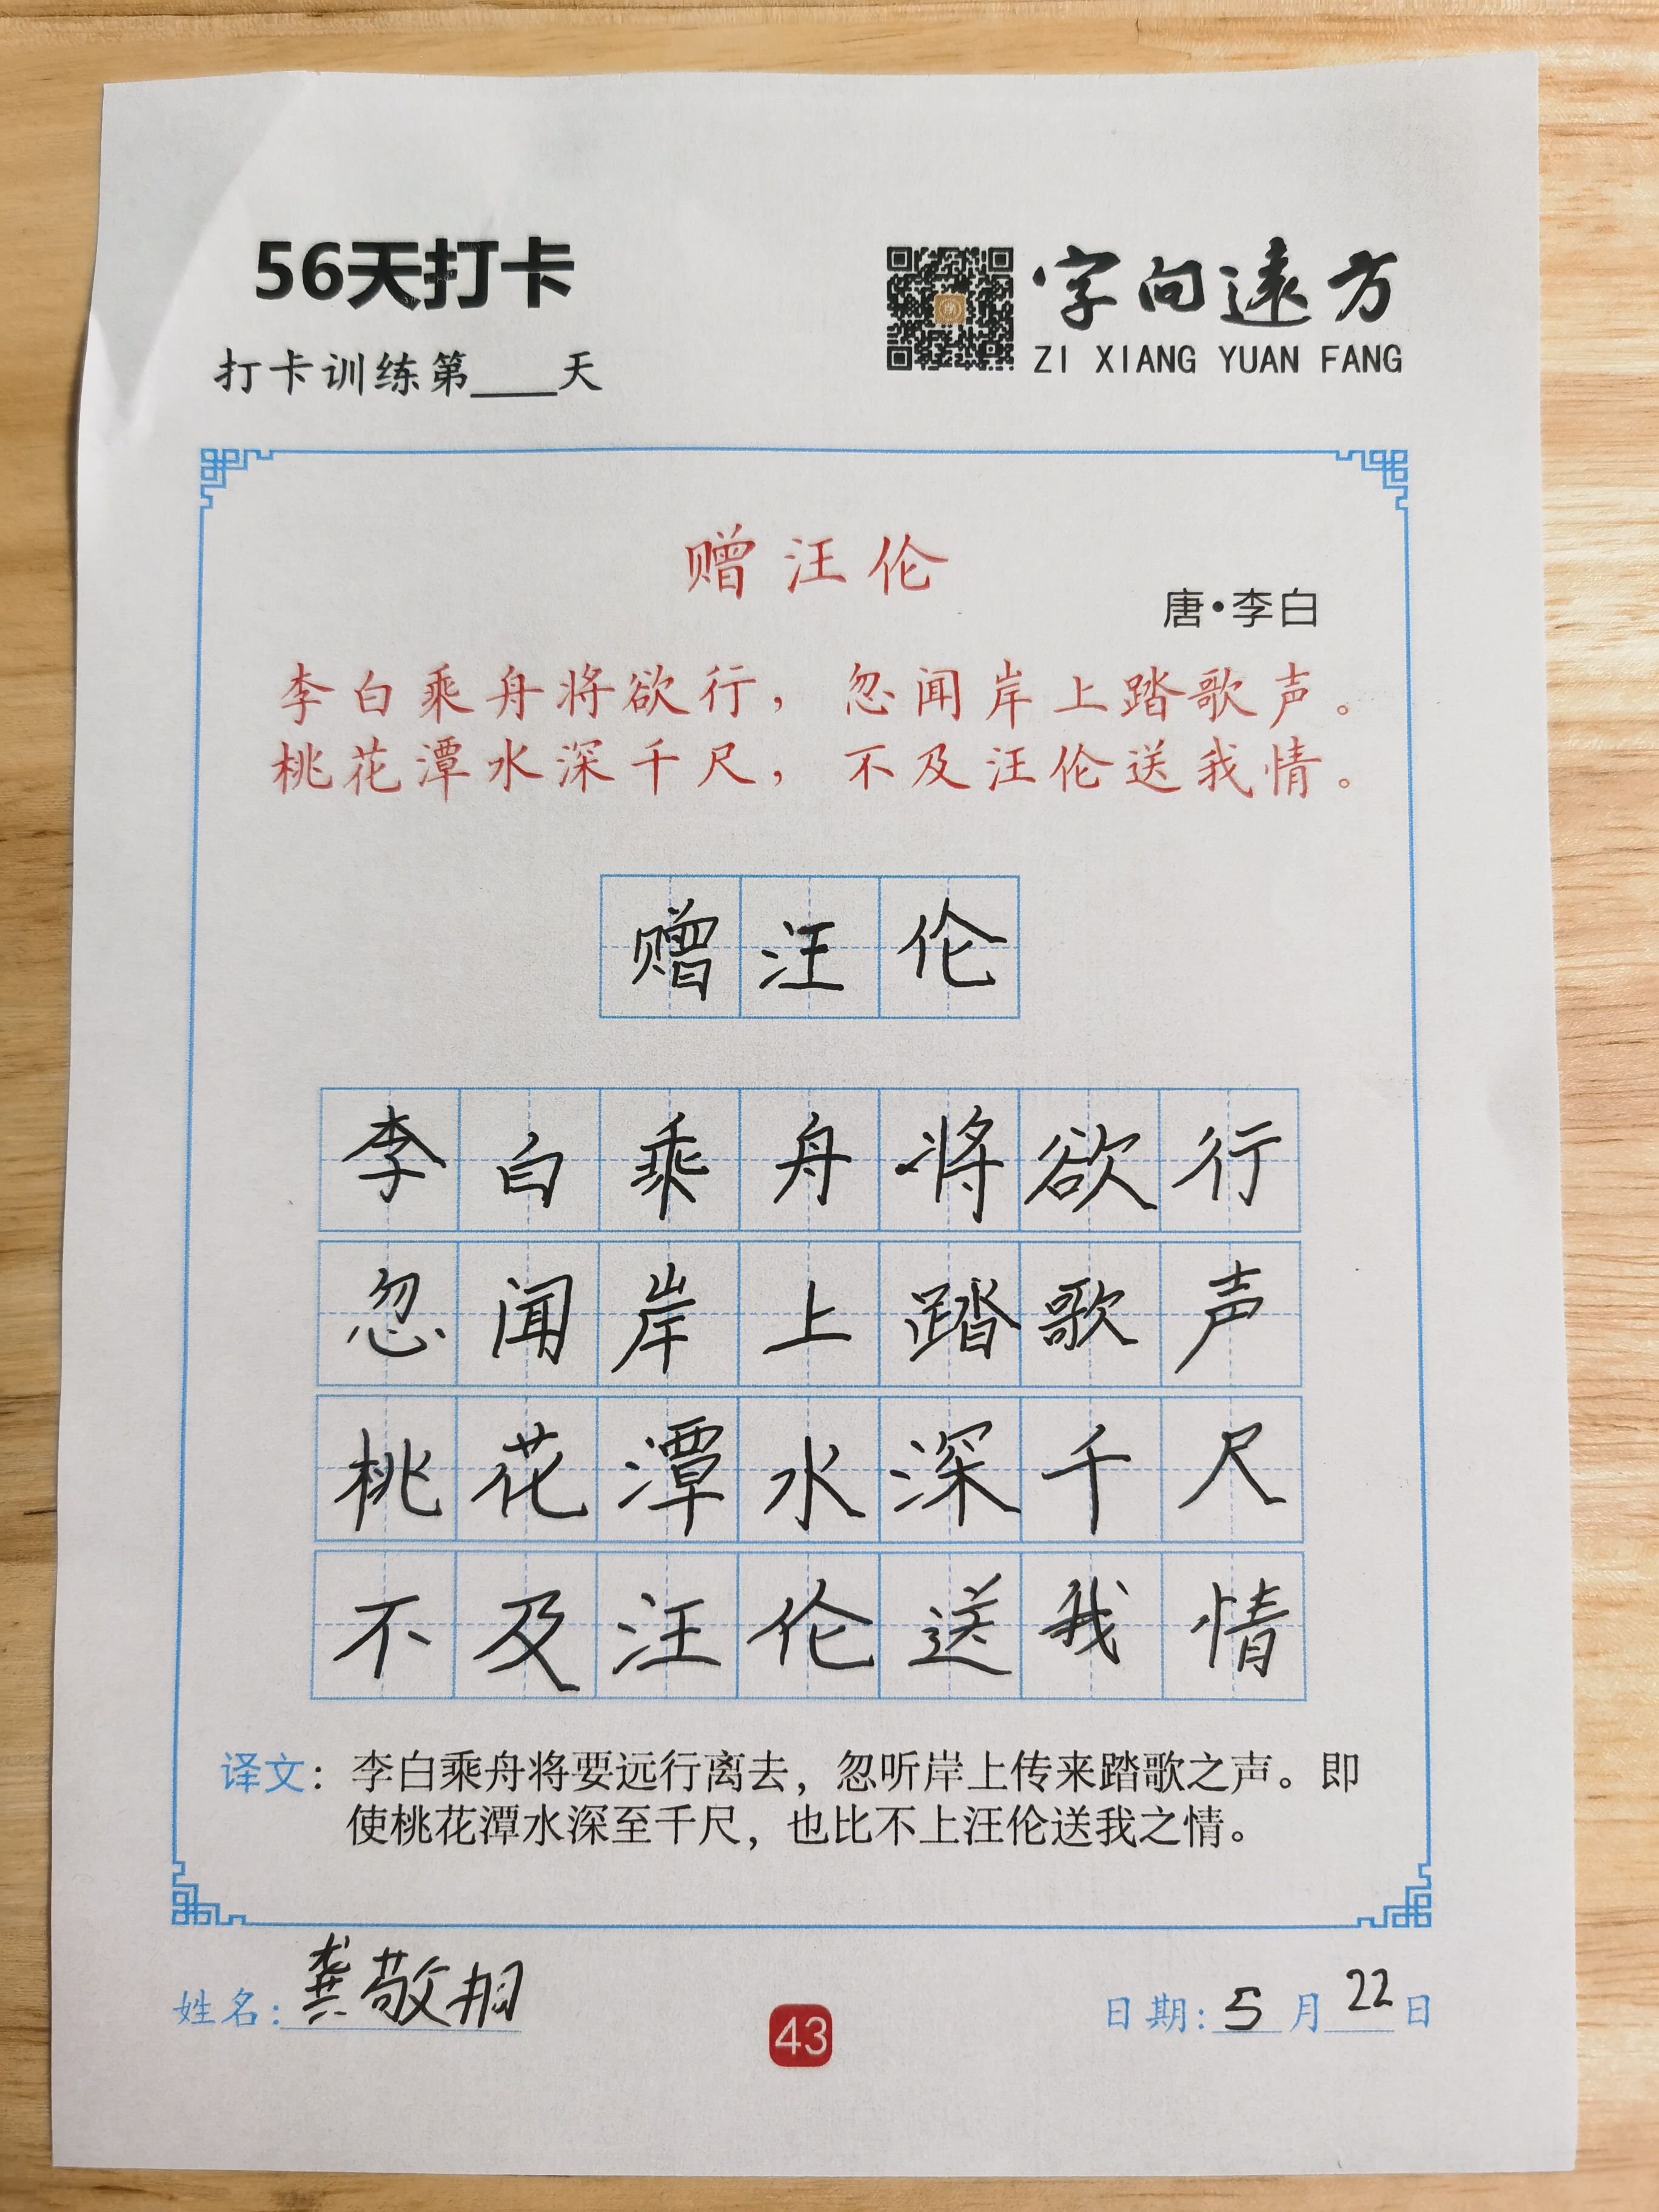 56天打卡
打卡训练第____天
字向遠方
ZI XIANG YUAN FANG
赠汪伦
唐·李白
李白乘舟将欲行，忽闻岸上踏歌声。
桃花潭水深千尺，不及汪伦送我情。
赠汪伦
李白乘舟将欲行
忽闻岸上踏歌声
桃花潭水深千尺
不及汪伦送我情
译文：李白乘舟将要远行离去，忽听岸上传来踏歌之声。即
使桃花潭水深至千尺，也比不上汪伦送我之情。
姓名：龚敬桐
43
日期：5月22日